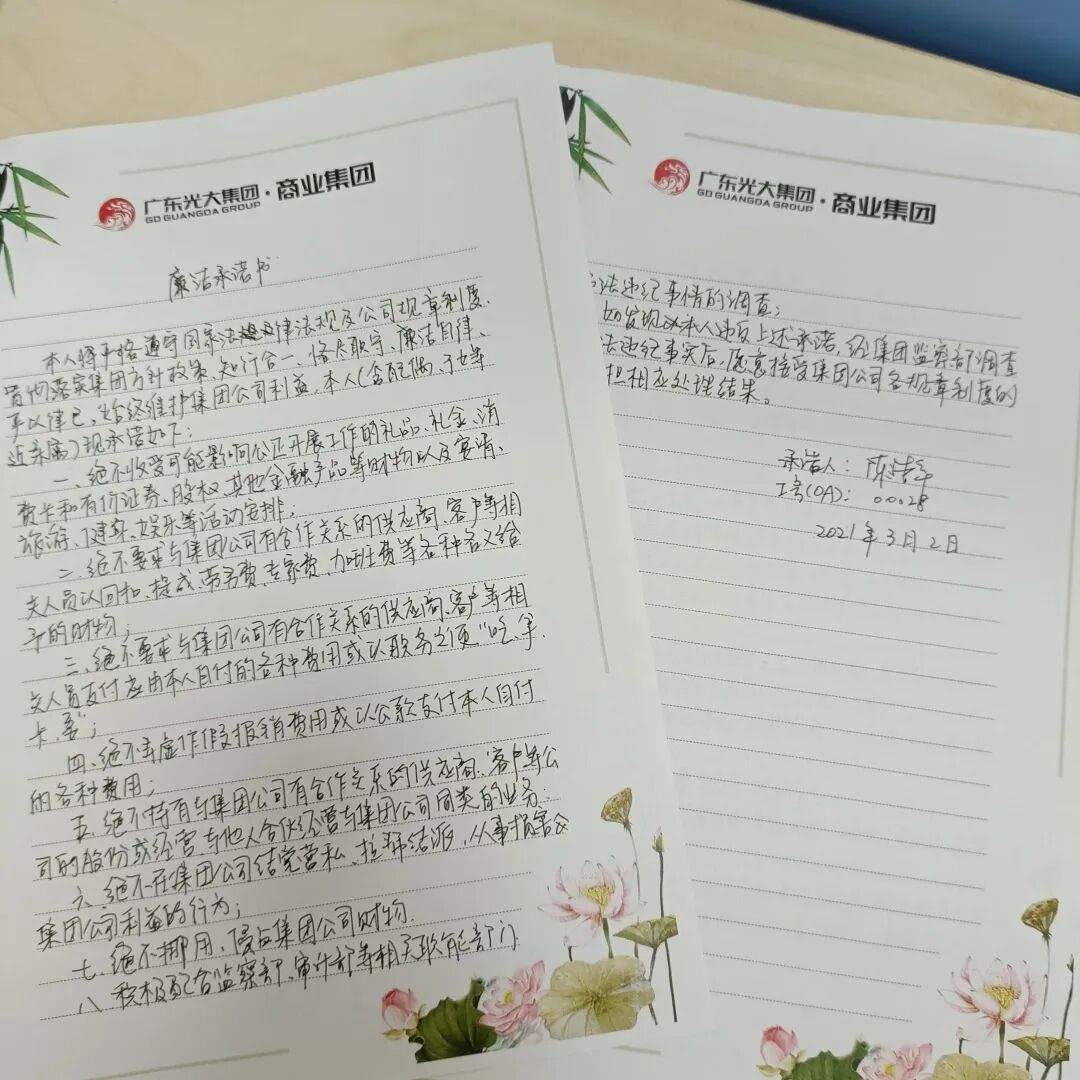 广东光大集团·商业集团
GD GUANGDA GROUP
廉洁承诺书
本人将严格遵守国家法律法规及公司规章制度、
贯彻落实集团方针政策,知行合一、恪尽职守、廉洁自律、
严以律己,始终维护集团公司利益,本人(含配偶、子女等
近亲属)现承诺如下:
一、绝不收受可能影响公正开展工作的礼品、礼金、消
费卡和有价证券、股权、其他金融产品等财物以及宴请、
旅游、健身、娱乐等活动安排;
二、绝不要求与集团公司有合作关系的供应商、客户等相
关人员以回扣、提成、劳务费、专家费、加班费等各种名义给
予的财物;
三、绝不要求与集团公司有合作关系的供应商、客户等相
关人员支付应由本人自付的各种费用或以职务之便“吃、拿、
卡、要”;
四、绝不弄虚作假报销费用或以公款支付本人自付
的各种费用;
五、绝不持有与集团公司有合作关系的供应商、客户等公
司的股份或经营与他人合伙经营与集团公司同类的业务;
六、绝不在集团公司结党营私、拉帮结派,从事损害
集团公司利益的行为;
七、绝不挪用、侵占集团公司财物.
八、积极配合监察部、审计部等相关职能部门
广东光大集团·商业集团
GD GUANGDA GROUP
法违纪事情的调查;
如发现本人违反上述承诺,经集团监察部调查
法违纪事实后,愿意接受集团公司各规章制度的
担相应处理结果。
承诺人:
工号(OA):00028
2021年3月2日